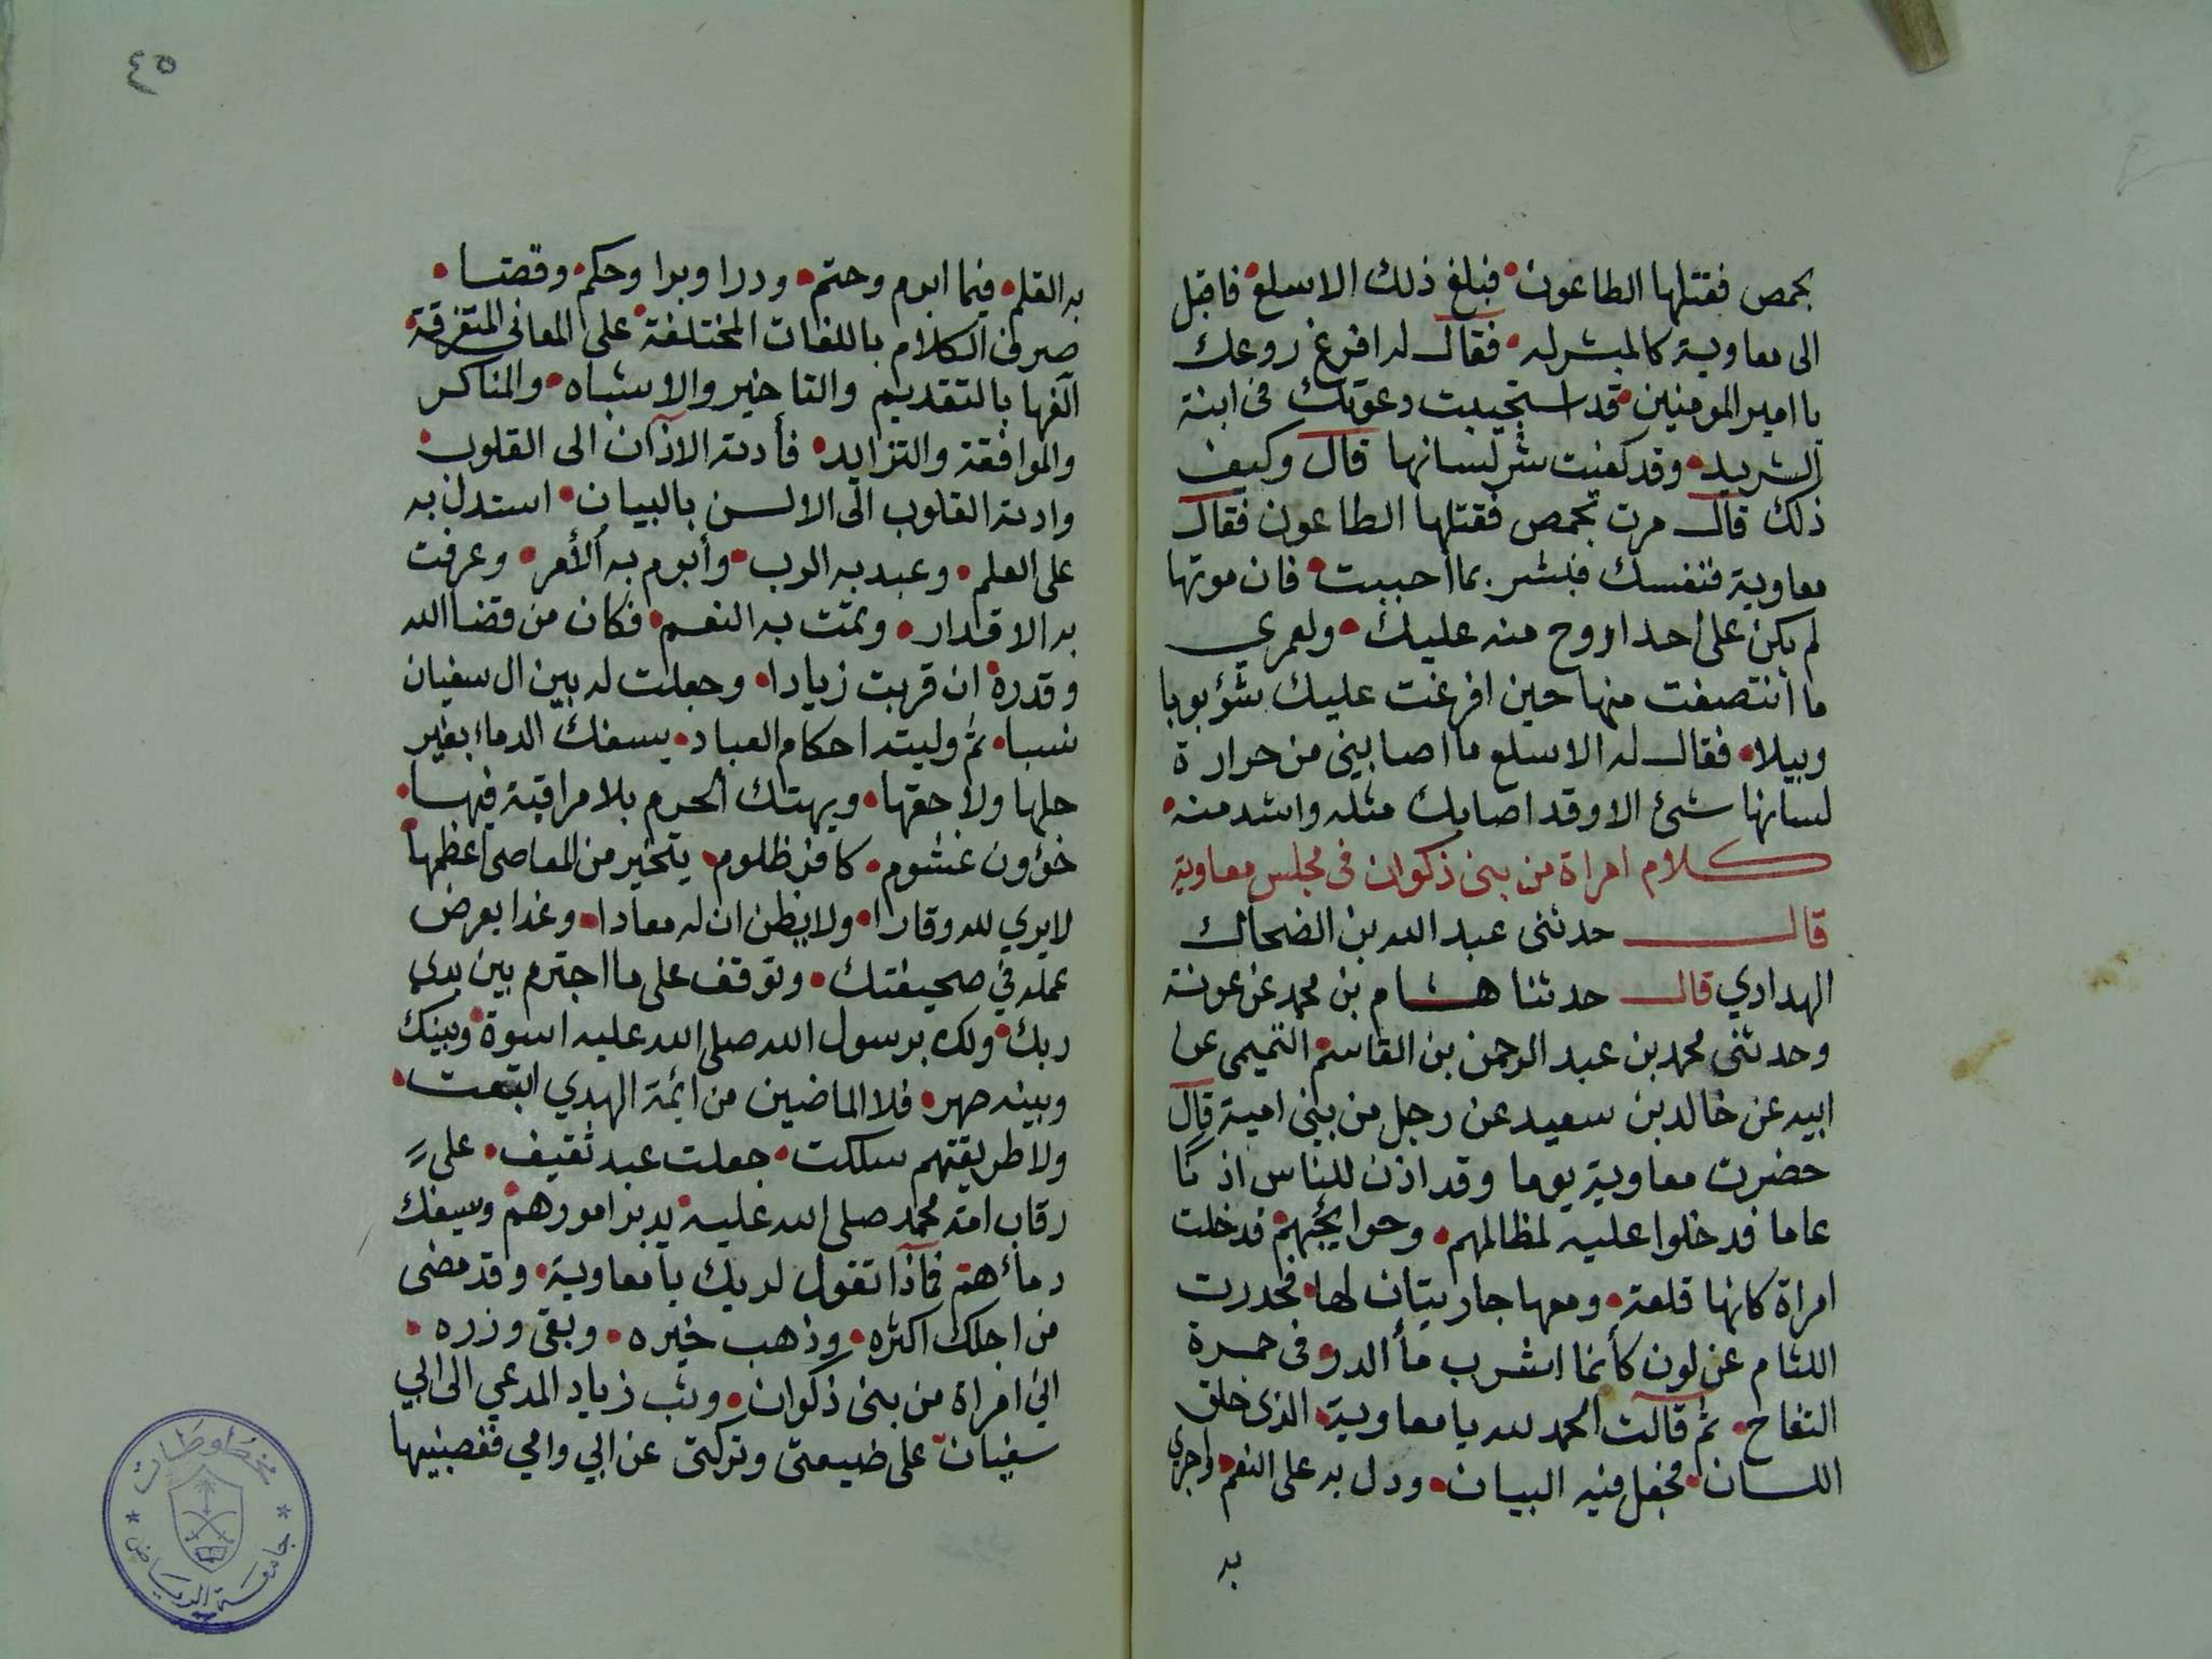 بحمص فقتلها الطاعون • فبلغ ذلك الاسلع • فاقبل
الى معاوية كالمبشر له • فقال له افرغ روعك
يا امير المومنين • قد استجيبت دعوتك في ابنة
الشريد • وقد كفيت شر لسانها قال وكيف
ذلك قال مرت بحمص فقتلها الطاعون فقال
معاوية فنفسك فبشر بما احببت • فان موتها
لم يكن على احد اروح منه عليك • ولعمري
ما انتصفت منها حين افرغت عليك شؤبوبا
وبيلا • فقال له الاسلع ما اصابني من حرارة
لسانها شئ الا وقد اصابك مثله واشد منه •
كلام امراة من بنى ذكوان فى مجلس معاوية
قال حدثنى عبد الله بن الضحاك
الهدادي قال حدثنا هشام بن محمد عن عونة
وحدثنى محمد بن عبد الرحمن بن القاسم التميمى عن
ابيه عن خالد بن سعيد عن رجل من بنى امية قال
حضرت معاوية يوما وقد اذن للناس اذنا
عاما فدخلوا عليه لمظالمهم • وحوايجهم • فدخلت
امراة كانها قلعة • ومعها جاريتان لها • فحدرت
اللثام عن لون كأنما اشرب مأ الدر وفى حمرة
التفاح • ثم قالت الحمد لله يا معاوية • الذى خلق
اللسان • فجعل فيه البيان • ودل به على النعم • واجرى
به
٤٥
به القلم • فيما ابرم وحتم • ودرا وبرا وحكم • وقضا •
صرف الكلام باللغات المختلفة • على المعانى المتفرقة •
الفها بالتقديم والتاخير والاشباه • والمناكر
والموافقة والتزايد • فأدته الاذان الى القلوب •
وادته القلوب الى الالسن بالبيان • استدل به
على العلم • وعبد به الرب • وأبرم به الأمر • وعرفت
به الاقدار • وتمت به النعم • فكان من قضا الله
وقدره • ان قربت زيادا • وجعلت له بين ال سفيان
نسبا • ثم وليته احكام العباد • يسفك الدما بغير
حلها ولا حقها • ويهتك الحرم بلا مراقبة فيها •
خؤون غشوم • كافر ظلوم • يتخير من المعاصى اعظمها •
لا يري لله وقارا • ولا يظن ان له معادا • وغدا يعرض
عمله في صحيفتك • وتوقف على ما اجترم بين يدي
ربك • ولك برسول الله صلى الله عليه اسوة • وبينك
وبينه صهر • فلا الماضين من ايمة الهدي اتبعت •
ولا طريقتهم سلكت • جعلت عبد ثقيف • على
رقاب امة محمد صلى الله عليه • يدبر امورهم • ويسفك
دمائهم فماذا تقول لربك يا معاوية • وقد مضى
من اجلك اكثره • وذهب خيره • وبقى وزره •
اني امراة من بنى ذكوان • وثب زياد المدعي الى ابي
سفيان على ضيعتى وتركتى عن ابي وامي فغصبنيها
مخطوطات
جامعة الرياض